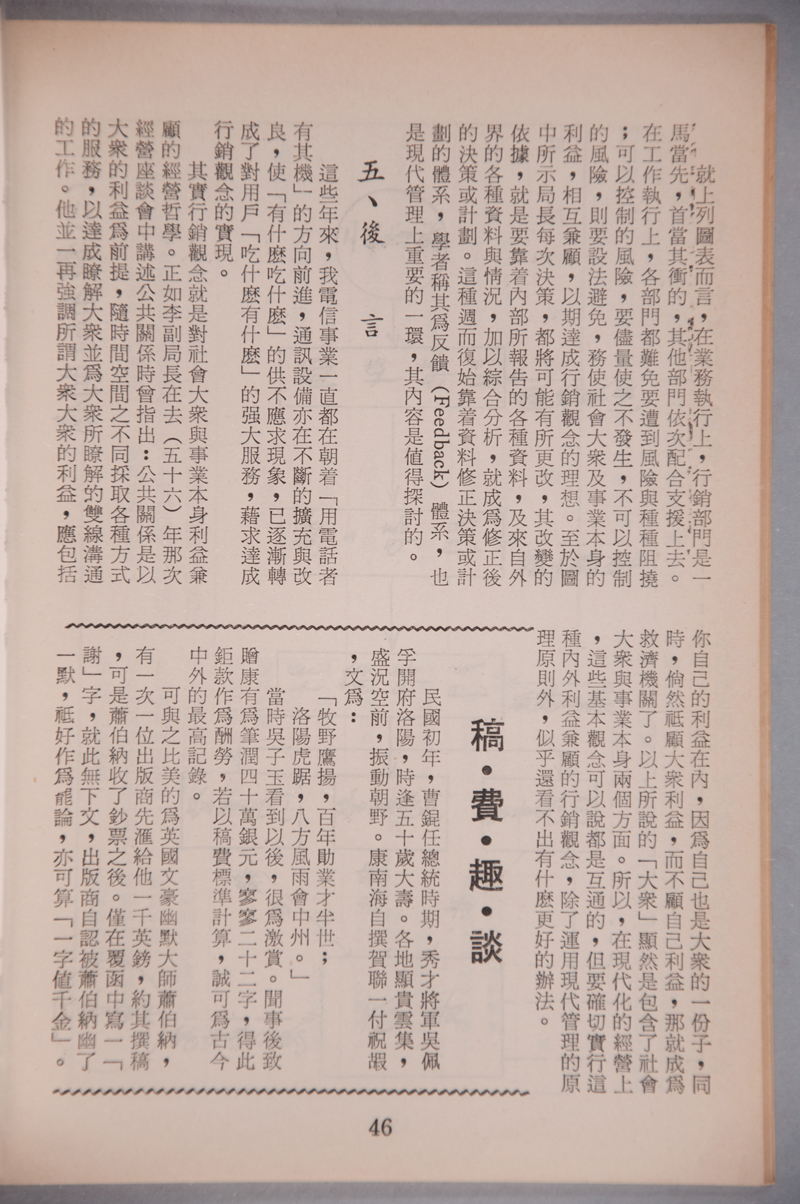 就上列圖表而言，在業務執行上，行銷部門是一
馬當先，首當其衝的，其他部門依次配合支援上去。
在工作執行上，各部門都難免要遭到風險與種種阻撓
；可以控制的風險，要儘量使之不發生，不可以控制
的風險，則要設法避免，務使社會大衆及事業本身的
利益，相互兼顧，以期達成行銷觀念的理想。至於圖
中所示局長每次決策，都將可能有所更改，其改變的
依據，就是要靠着內部所報告的各種資料，及來自外
界的各種資料與情況，加以綜合分析，就成爲修正後
的決策或計劃。這種週而復始靠着資料修正決策或計
劃的體系，學者稱其爲反饋 (Feedback) 體系，也
是現代管理上重要的一環，其內容是値得探討的。
五、後　言
這些年來，我電信事業一直都在朝着「用電話者
有其機」的方向前進，通訊設備亦在不斷的擴充與改
良，使「有什麽吃什麽」的供不應求現象，已逐漸轉
成了對用戶「吃什麽有什麽」的强大服務，藉求達成
行銷觀念的實現。
其實行銷觀念就是對社會大衆與事業本身利益兼
顧的經營哲學。正如李副局長在去（五十六）年那次
經營座談會中講述公共關係時曾指出：公共關係是以
大衆的利益爲前提，隨時間空間之不同採取各種方式
的服務，以達成瞭解大衆並爲大衆所瞭解的雙線溝通
的工作。他並一再強調所謂大衆大衆的利益，應包括
你自己的利益在內，因爲自己也是大衆的一份子，同
時，倘然祗顧大衆利益，而不顧自己利益，那就成爲
救濟機關了。以上所說的「大衆」顯然是包含了社會
大衆與事業本身兩個方面。所以，在現代化的經營上
，這些基本觀念可以說都是互通的，但要確切實行這
種內外利益兼顧的行銷觀念，除了運用現代管理的原
理原則外，似乎還看不出有什麽更好的辦法。
稿・費・趣・談
民國初年，曹錕任總統時期，秀才將軍吳佩
孚開府洛陽，時逢五十歲大壽。各地顯貴雲集，
盛況空前，振動朝野。康南海自撰賀聯一付祝嘏
，文爲：
「牧野鷹揚，百年勛業才半世；
洛陽虎踞，八方風雨會中州。」
當時吳子玉看到以後，很爲激賞。聞事後致
贈康有爲筆潤四十萬銀元，寥寥二十二字，得此
鉅款作爲酬勞，若以稿費標準計算，誠可爲古今
中外的最高記錄。
可與之比美的爲英國文豪幽默大師蕭伯納，
有一次一位出版商先滙給他一千英鎊，約其撰稿
，可是蕭伯納收了鈔票之後。僅在覆函中寫一「
謝」字，就此無下文，出版商自認被蕭伯納幽了
一默，祗好作爲罷論，亦可算「一字值千金」。
46